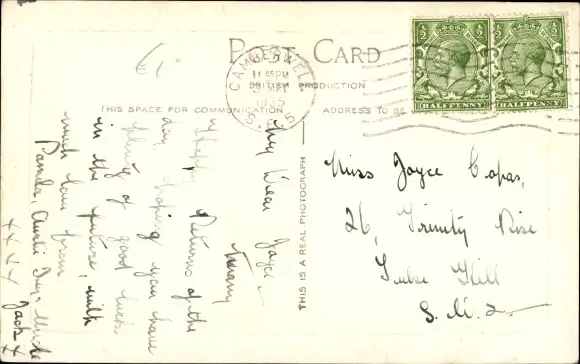 POST CARD
CAMBERWELL
11.45PM
MAY
1935
S.E.5
BRITISH PRODUCTION
THIS SPACE FOR COMMUNICATION
ADDRESS TO BE
HALFPENNY
HALFPENNY
THIS IS A REAL PHOTOGRAPH
My Dear Joyce
Many
Happy Returns of the
day hoping you have
plenty of good luck
in the future, with
much love from
Pamela, Auntie Ivy & Uncle
Jack x
x x x x
Miss Joyce Copas,
26, Trinity Rise
Tulse Hill
S.W.2.